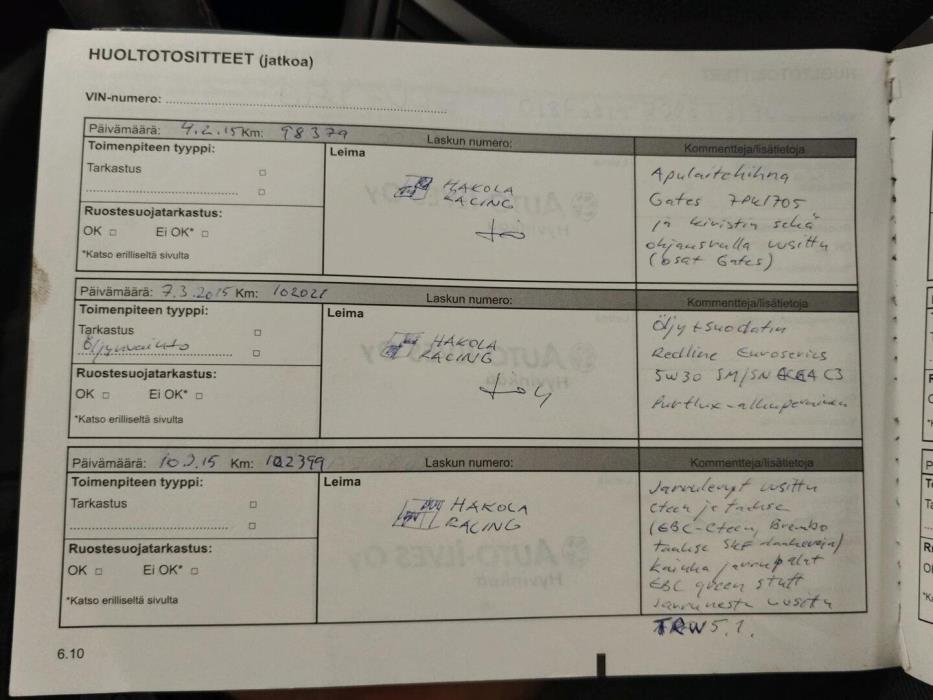 HUOLTOTOSITTEET (jatkoa)
VIN-numero:
Päivämäärä: 4.2.15 Km: 98379 Laskun numero:
Kommentteja/lisätietoja
Toimenpiteen tyyppi:
Tarkastus
Ruostesuojatarkastus:
OK Ei OK*
*Katso erilliseltä sivulta
Leima
HAKOLA
RACING
Apulaitehihna
Gates 7PK1705
ja kiristin sekä
ohjausrulla uusittu
(osat Gates)
Päivämäärä: 7.3.2015 Km: 102021 Laskun numero:
Kommentteja/lisätietoja
Toimenpiteen tyyppi:
Tarkastus
Öljynvaihto
Ruostesuojatarkastus:
OK Ei OK*
*Katso erilliseltä sivulta
Leima
HAKOLA
RACING
Öljy + suodatin
Redline Euroseries
5W30 SM/SN ACEA C3
Purflux-alkuperäinen
Päivämäärä: 10.3.15 Km: 102399 Laskun numero:
Kommentteja/lisätietoja
Toimenpiteen tyyppi:
Tarkastus
Ruostesuojatarkastus:
OK Ei OK*
*Katso erilliseltä sivulta
Leima
HAKOLA
RACING
Jarrulevyt uusittu
eteen ja taakse
(EBC-eteen, Brembo
taakse SKF laakereja)
kaikki jarrupalat
EBC green stuff
Jarruneste uusittu
TRW 5.1.
6.10